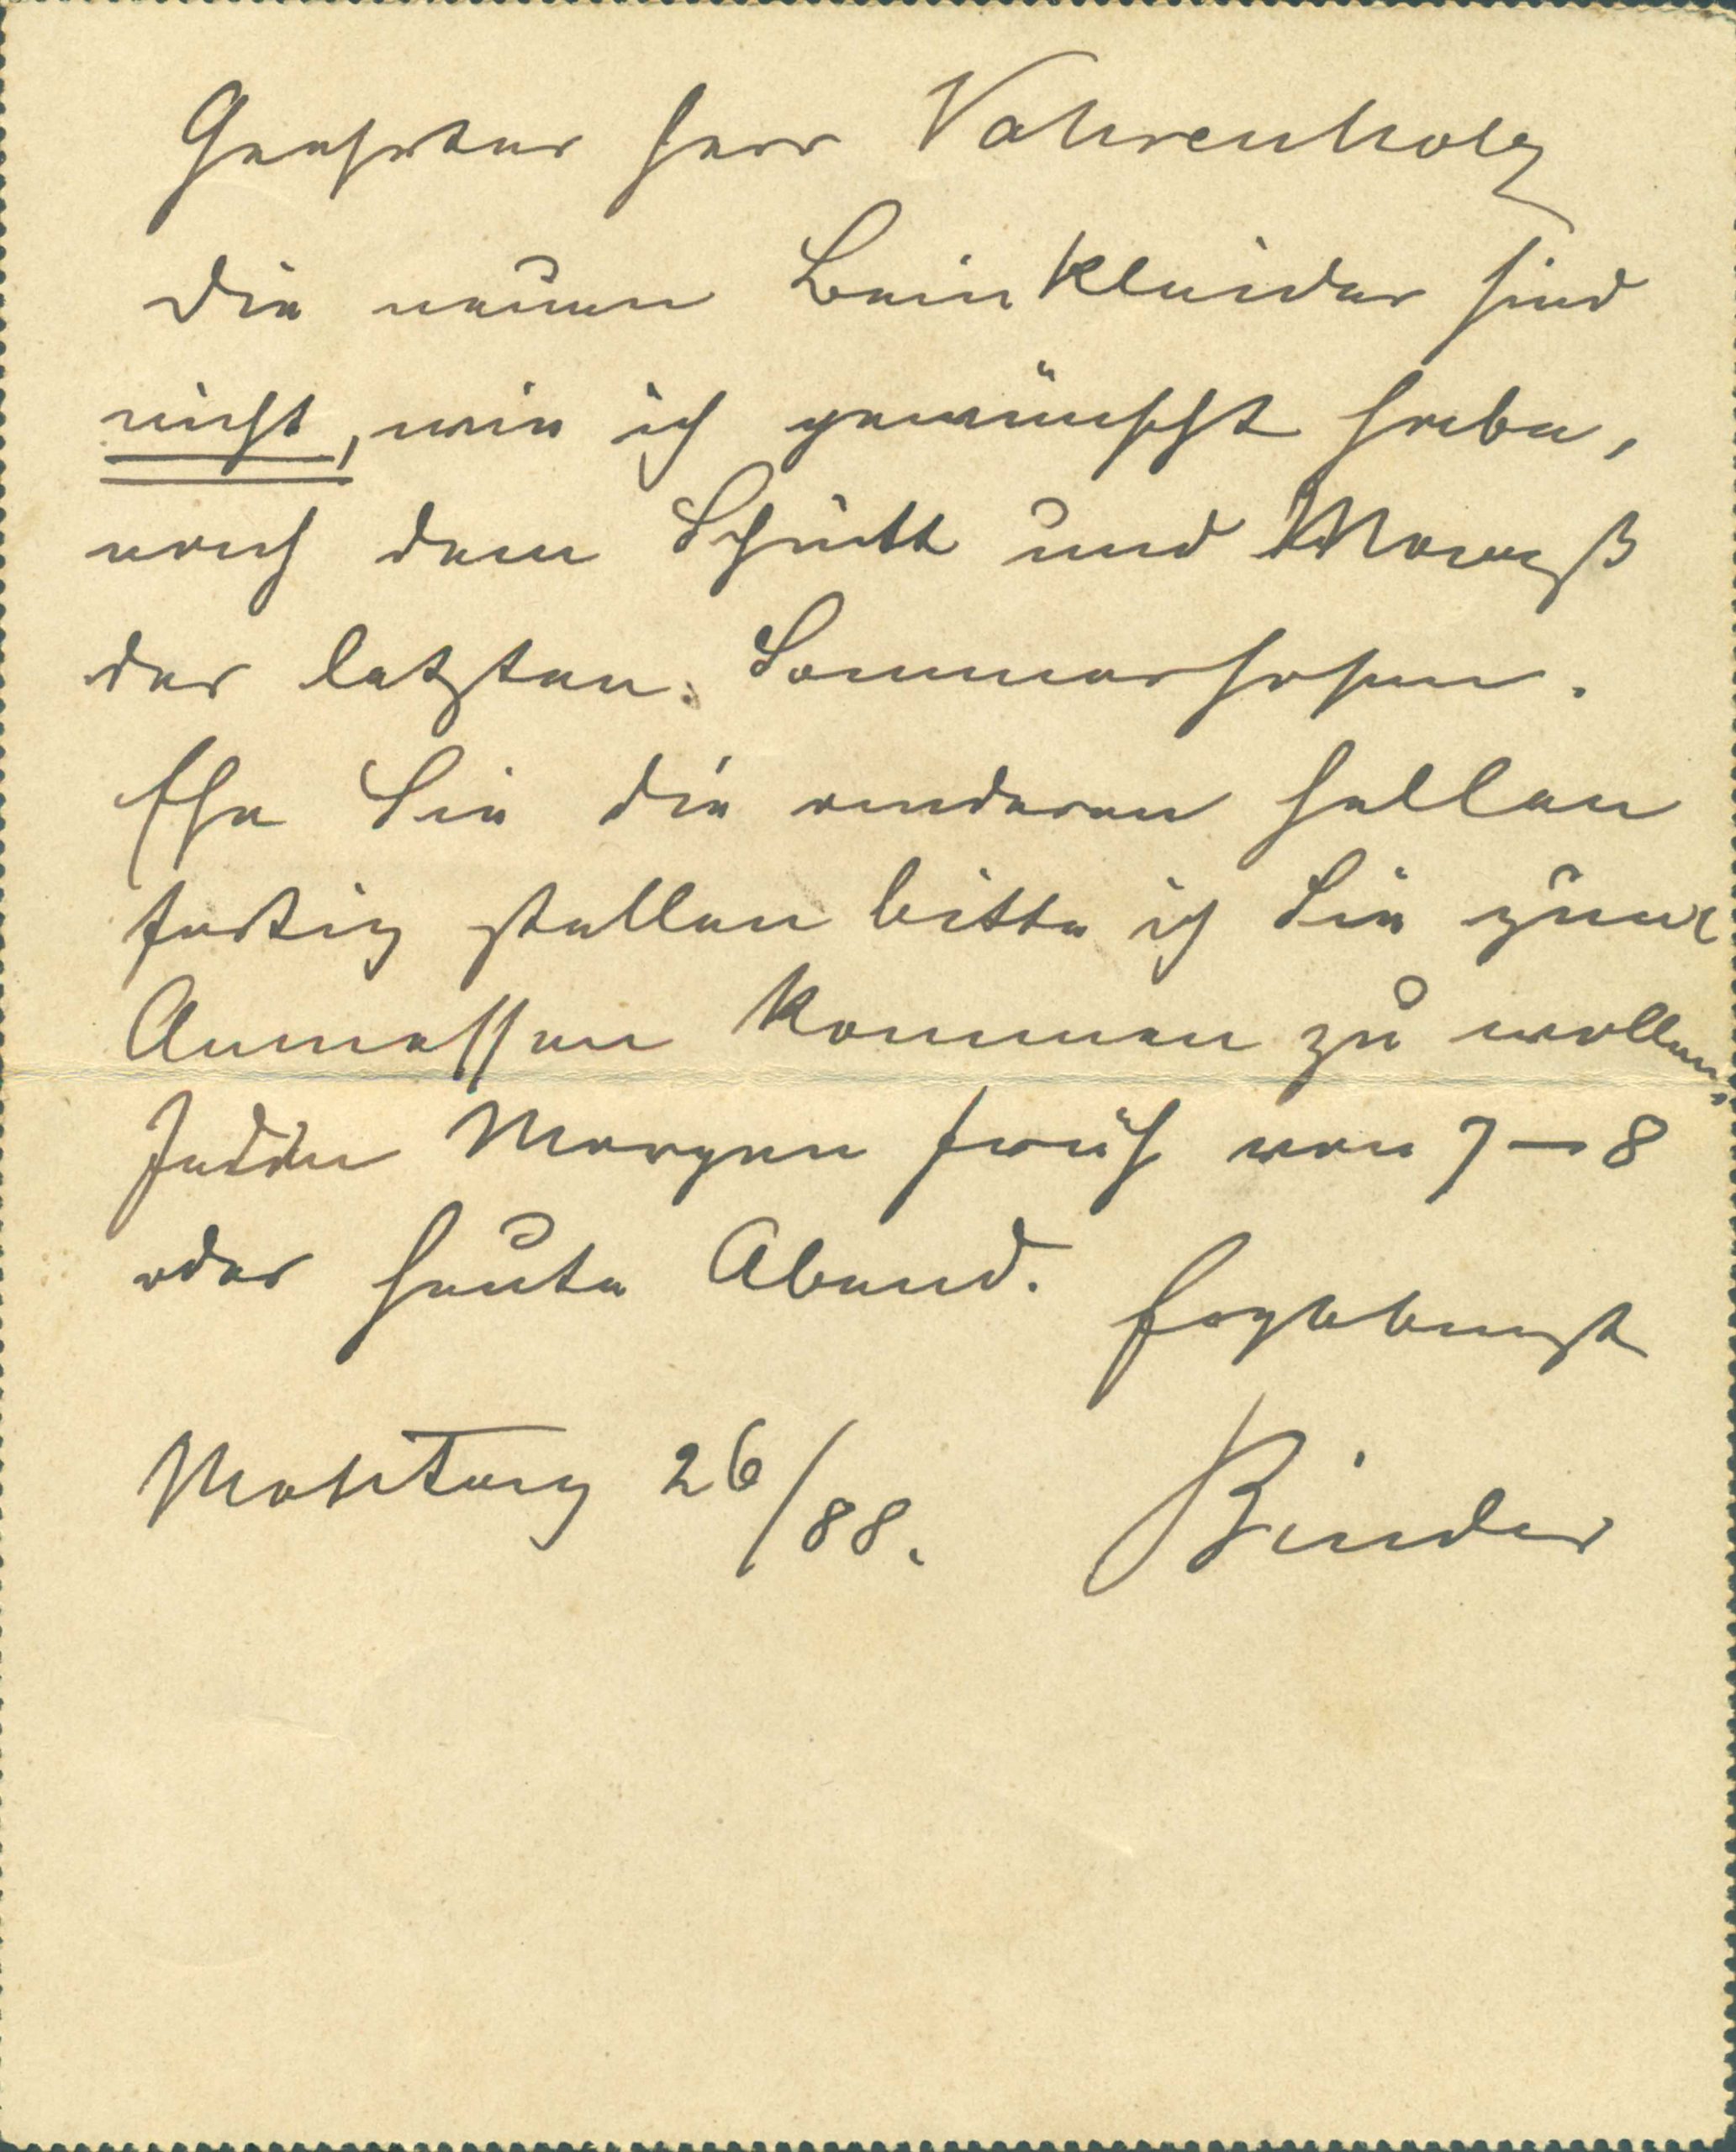 Geehrter Herr Vahrenholz
die neuen Beinkleider sind
nicht, wie ich gewünscht habe,
nach dem Schnitt und Maaß
der letzten Sommerhosen.
Ehe Sie die anderen hellen
fertig stellen bitte ich Sie zum
Anmessen kommen zu wollen,
Jeden Morgen früh von 7–8
oder heute Abend. Ergebenst
26/88. Binder